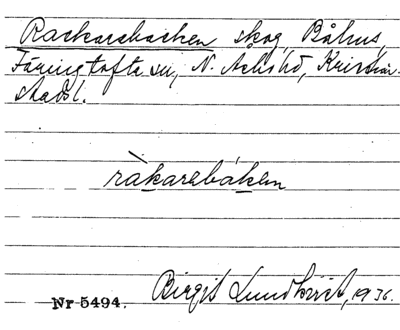 Rackarebacken skog, Båhus,
Färingtofta sn, N. Åsbo hd, Kristian-
stads l.
ràkarebáken
Birgit Lundkvist, 1936.
Nr 5494.